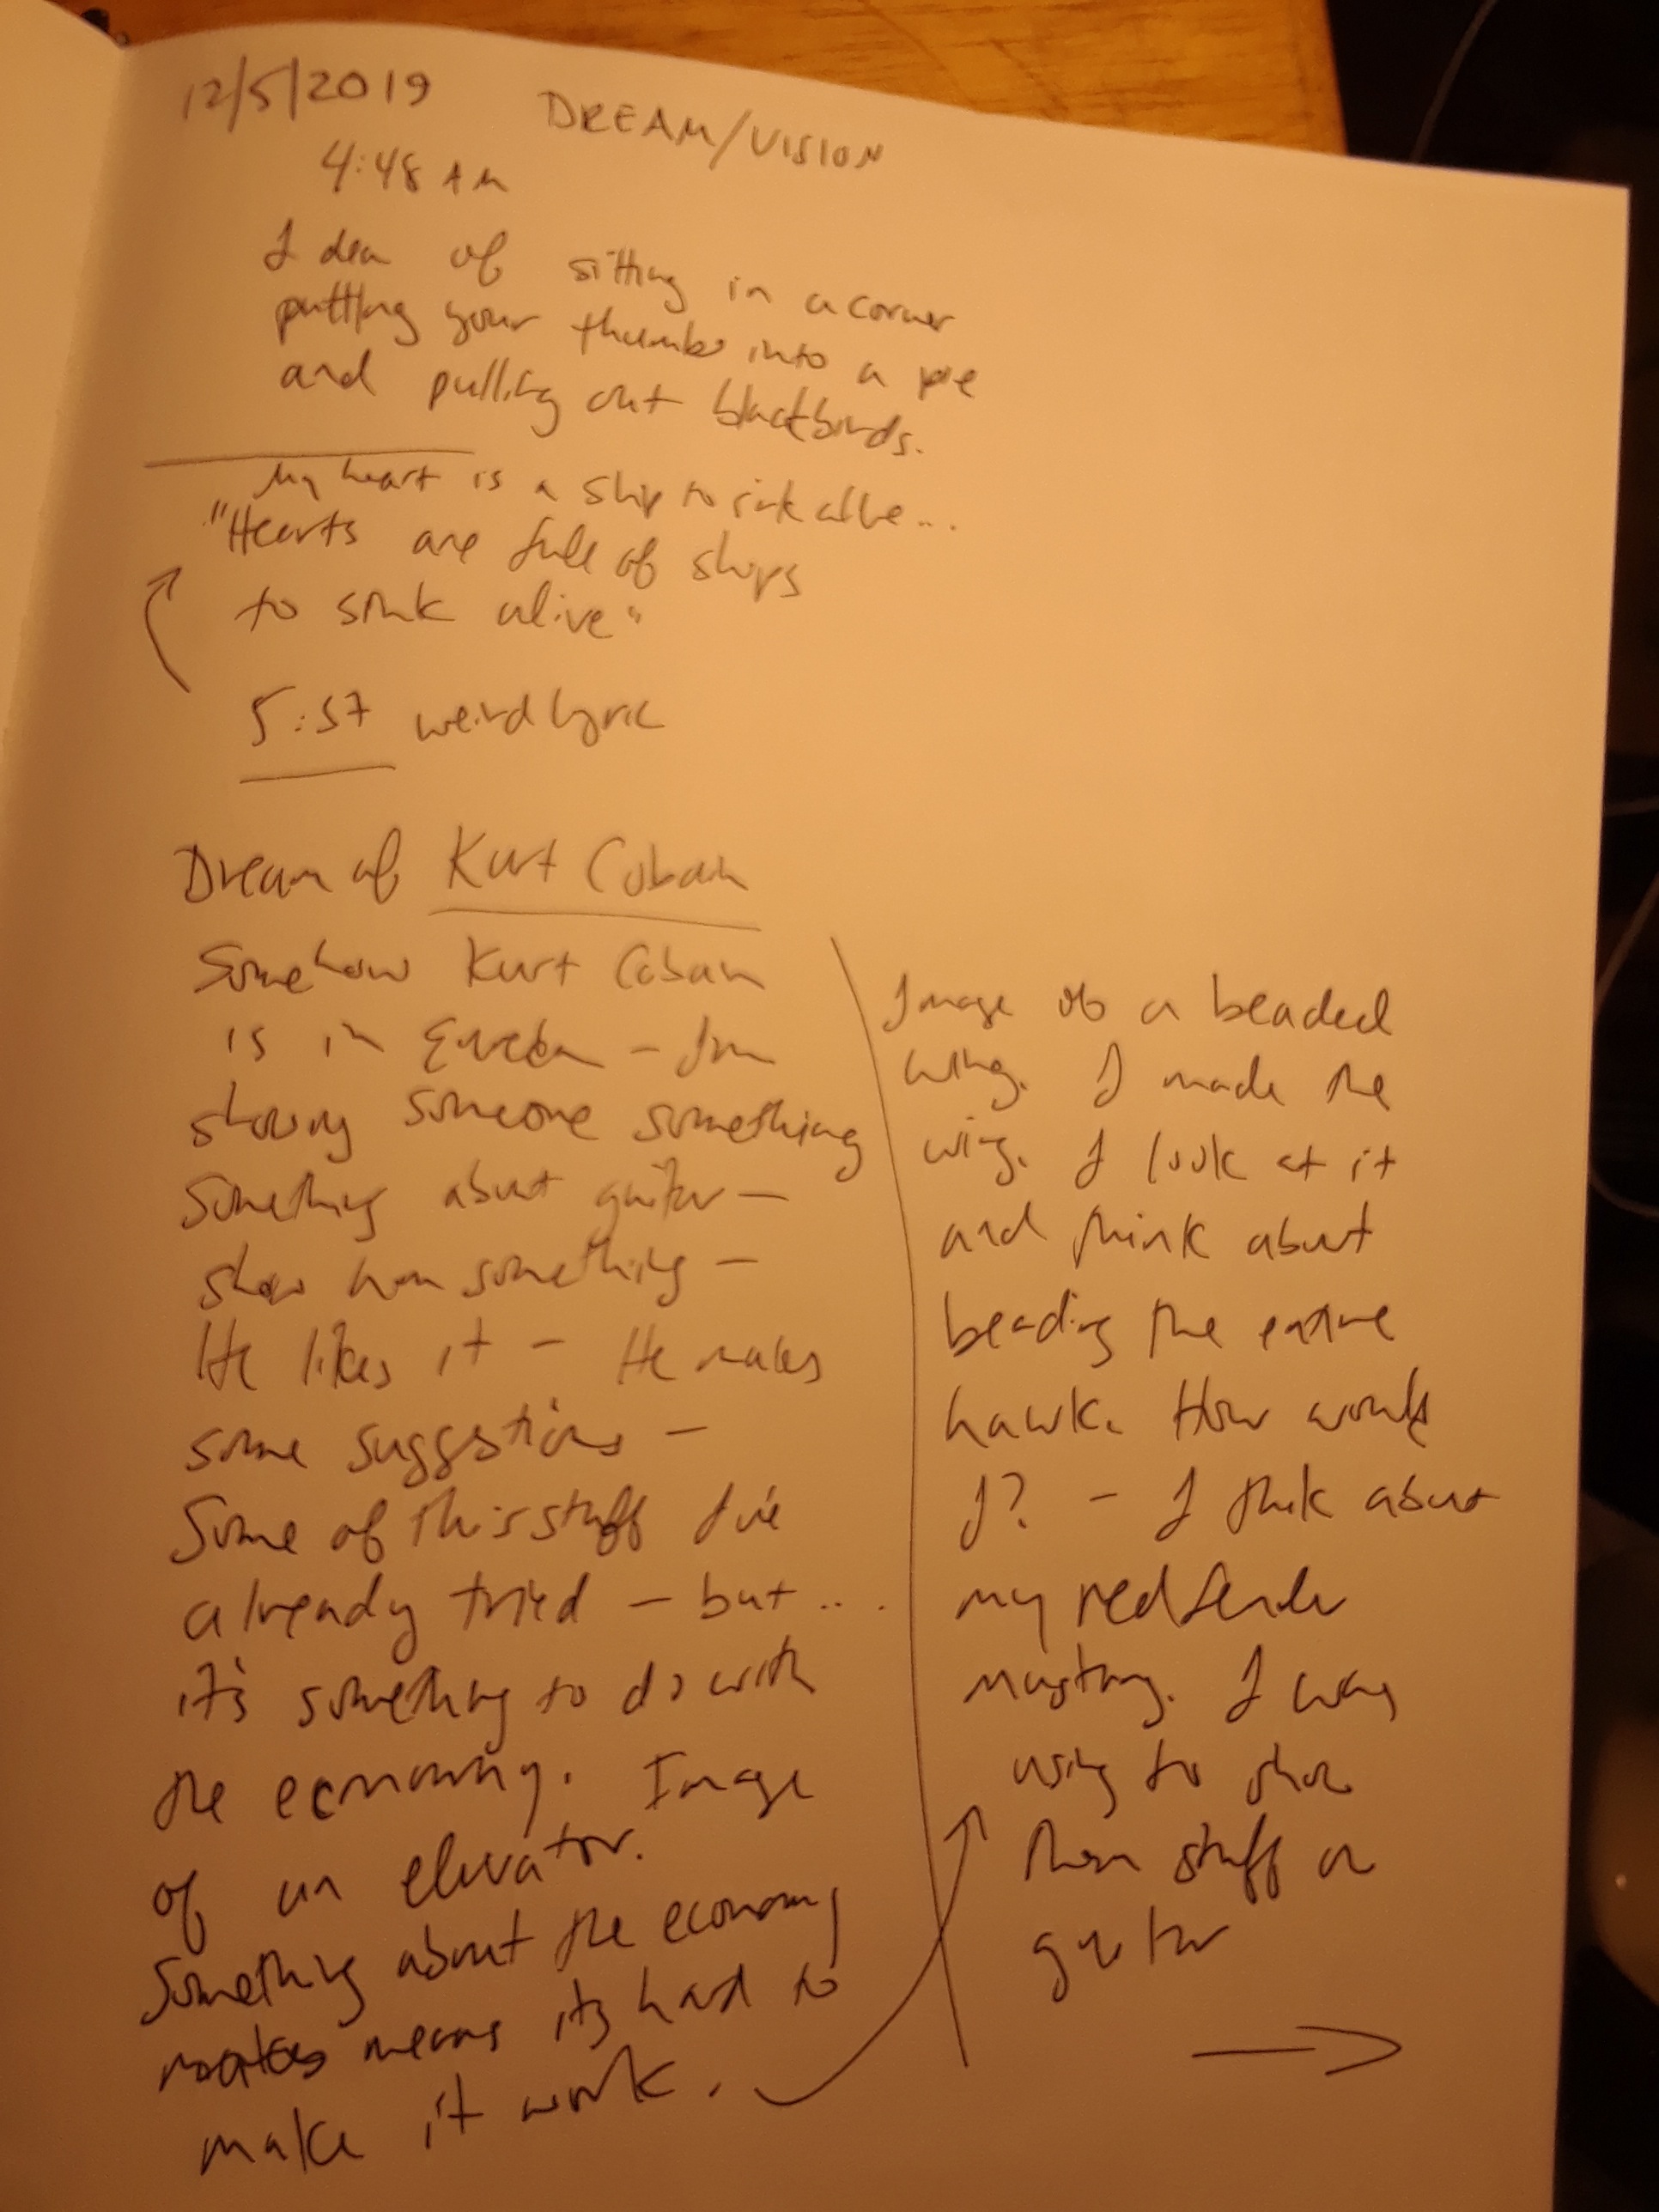 12/5/2019 DREAM/VISION
4:48 AM
Idea of sitting in a corner
putting your thumbs into a pie
and pulling out blackbirds.
My heart is a ship to sink alive...
"Hearts are full of ships
to sink alive"
5:57 weird lyric
Dream of Kurt Cobain
Somehow Kurt Cobain
is in Eureka - I'm
showing someone something
something about guitar -
show him something -
He likes it - He makes
some suggestions -
Some of this stuff I've
already tried - but ...
it's something to do with
the economy. Image
of an elevator.
Something about the economy
means its hard to
make it work.
Image of a beaded
wing. I made the
wing. I look at it
and think about
beading the entire
hawk. How would
I? - I think about
my red fender
mustang. I was
using to show
them stuff on
guitar